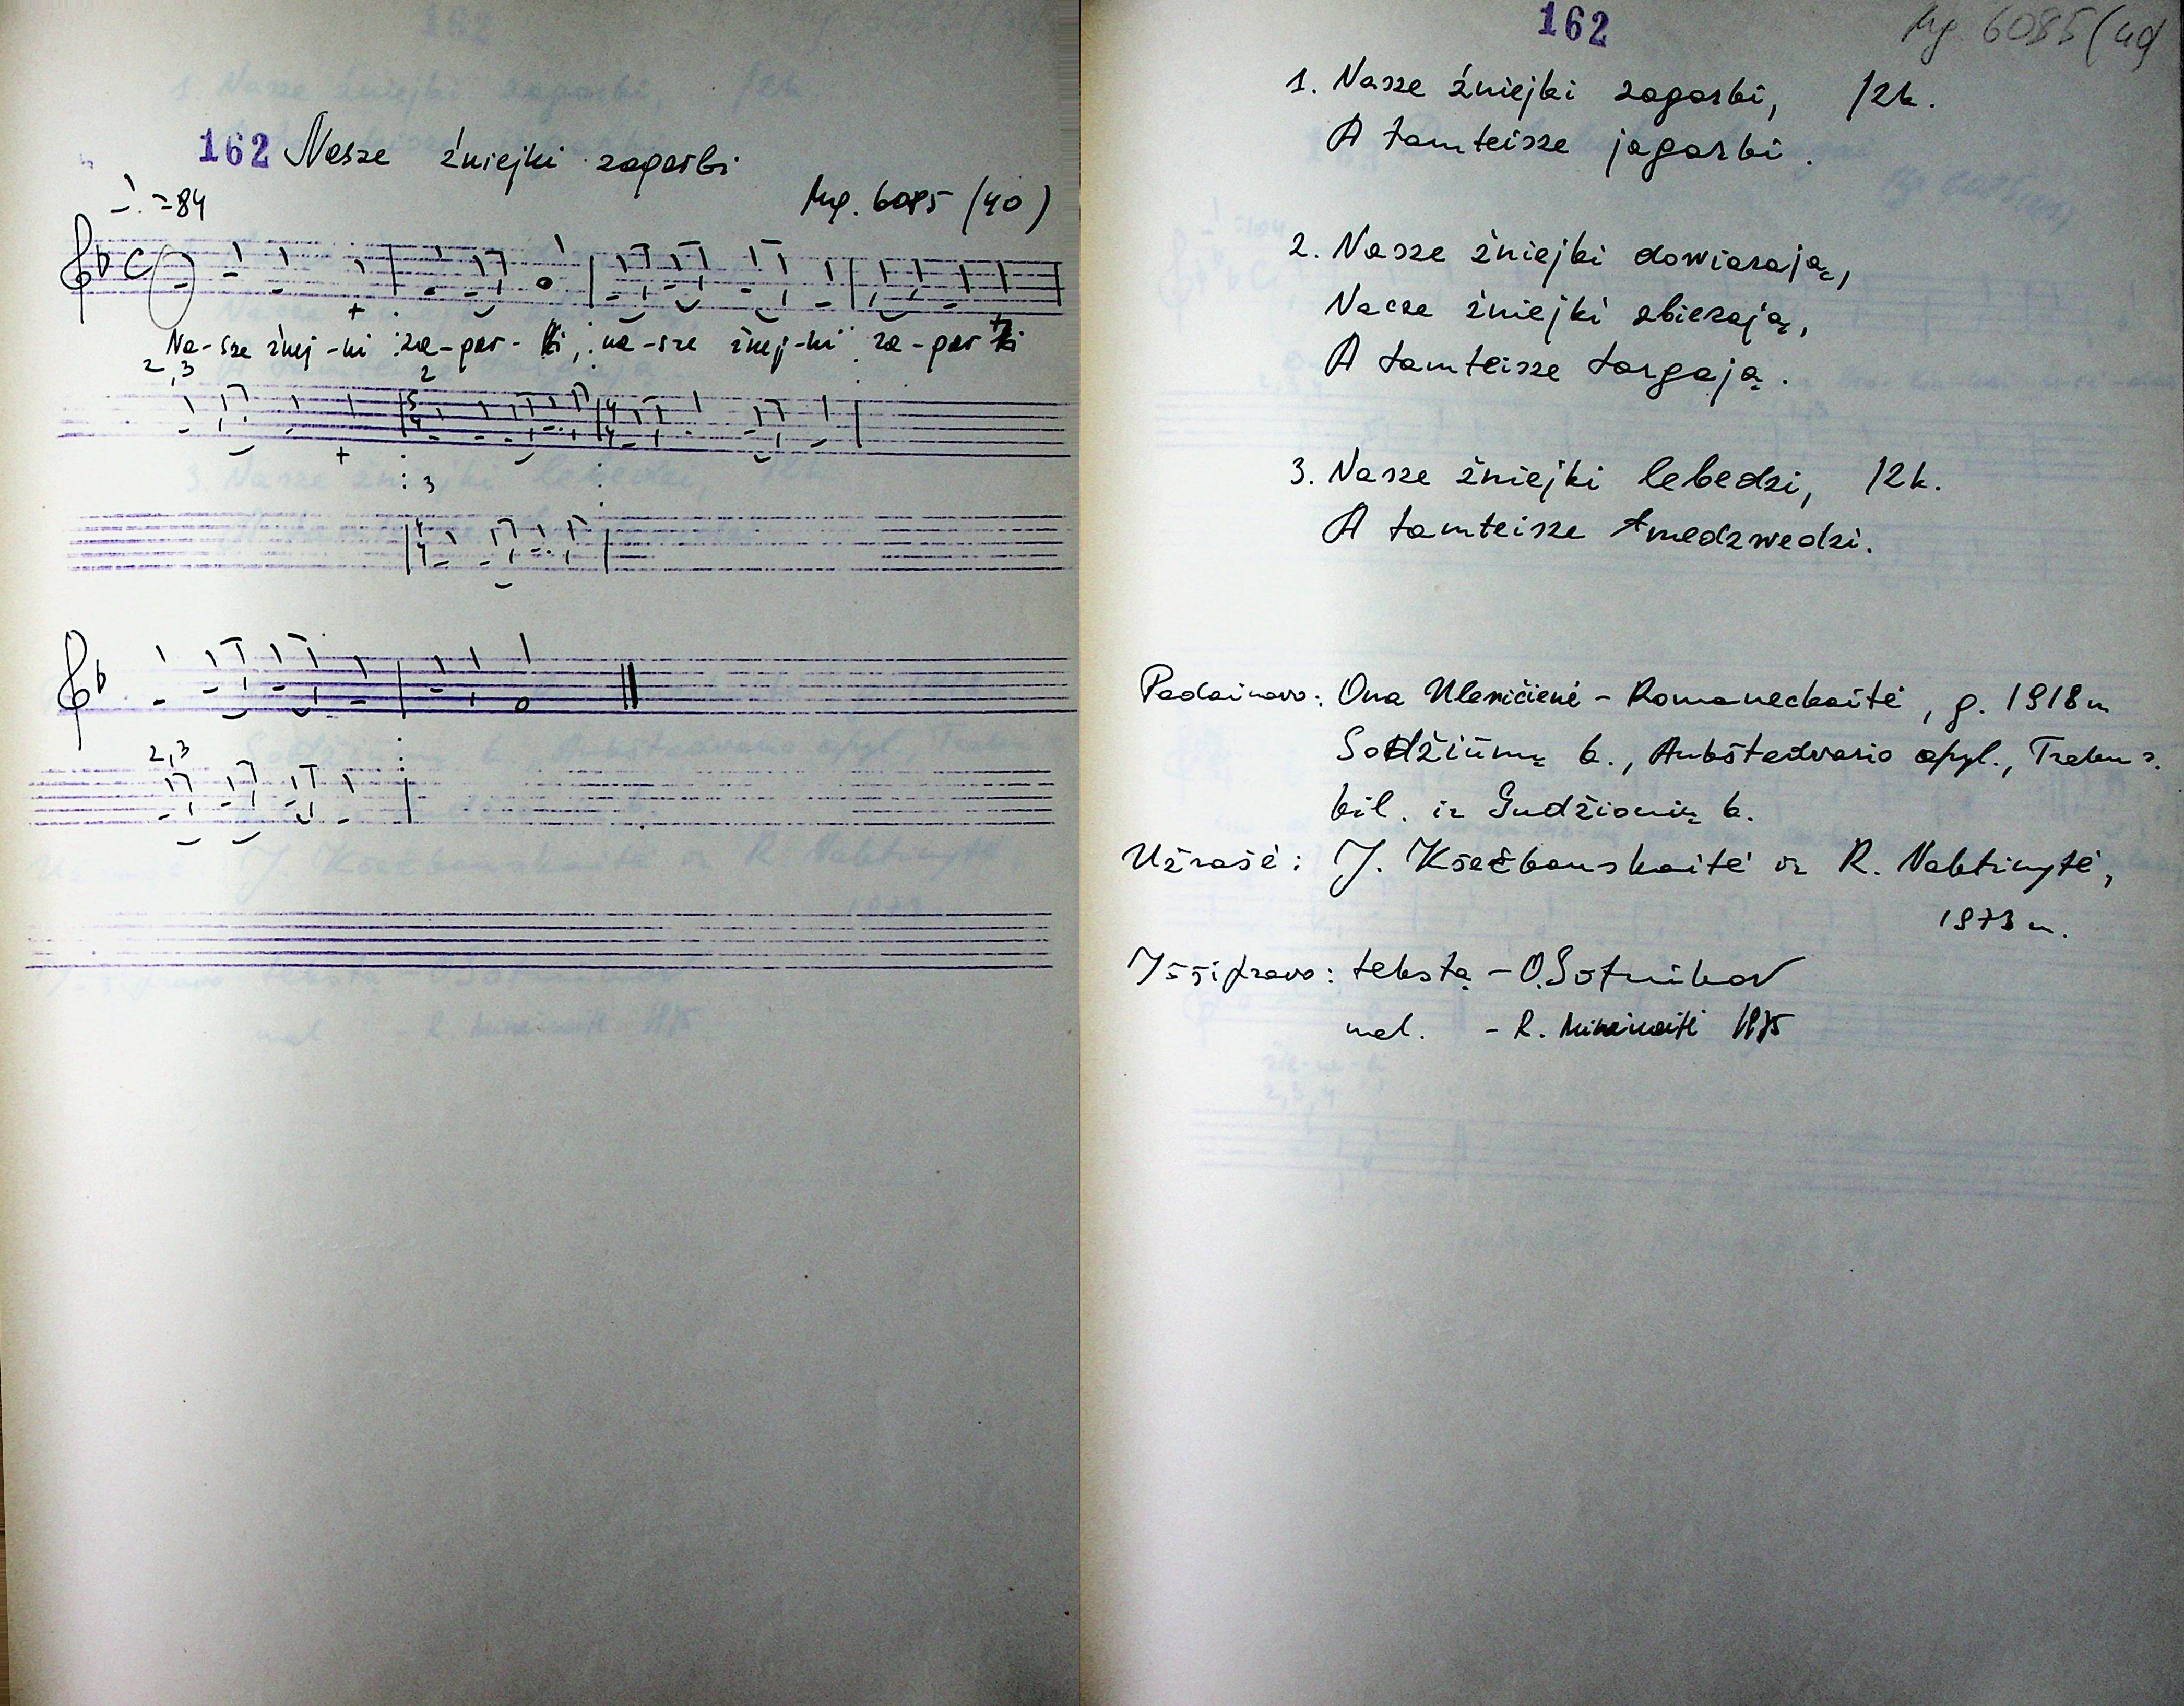 162 Nasze żniejki zagarbi
= 84
Mg. 6085 (40)
Na-sze żnej-ki za-gar-bi, na-sze żnej-ki za-gar-bi
2,3
2
5
4
4
4
3
4
4
2,3
162
Mg. 6085 (40)
1. Nasze żniejki zagarbi, /2k.
A tamteisze jagarbi.
2. Nasze żniejki dowiarają,
Nacze żniejki zbierają,
A tamteisze targają.
3. Nasze żniejki lebedzi, /2k.
A tamteisze medzwedzi.
Padainavo: Ona Ulevičienė - Romaneckaitė, g. 1918 m
Sodžiūnų k., Aukštadvario apyl., Trakų r.
kil. iš Gudžionių k.
Užrašė: J. Kšečkauskaitė ir R. Valitinytė,
1973 m.
Iššifravo: tekstą - O. Sotnikov
mel. - R. 1975